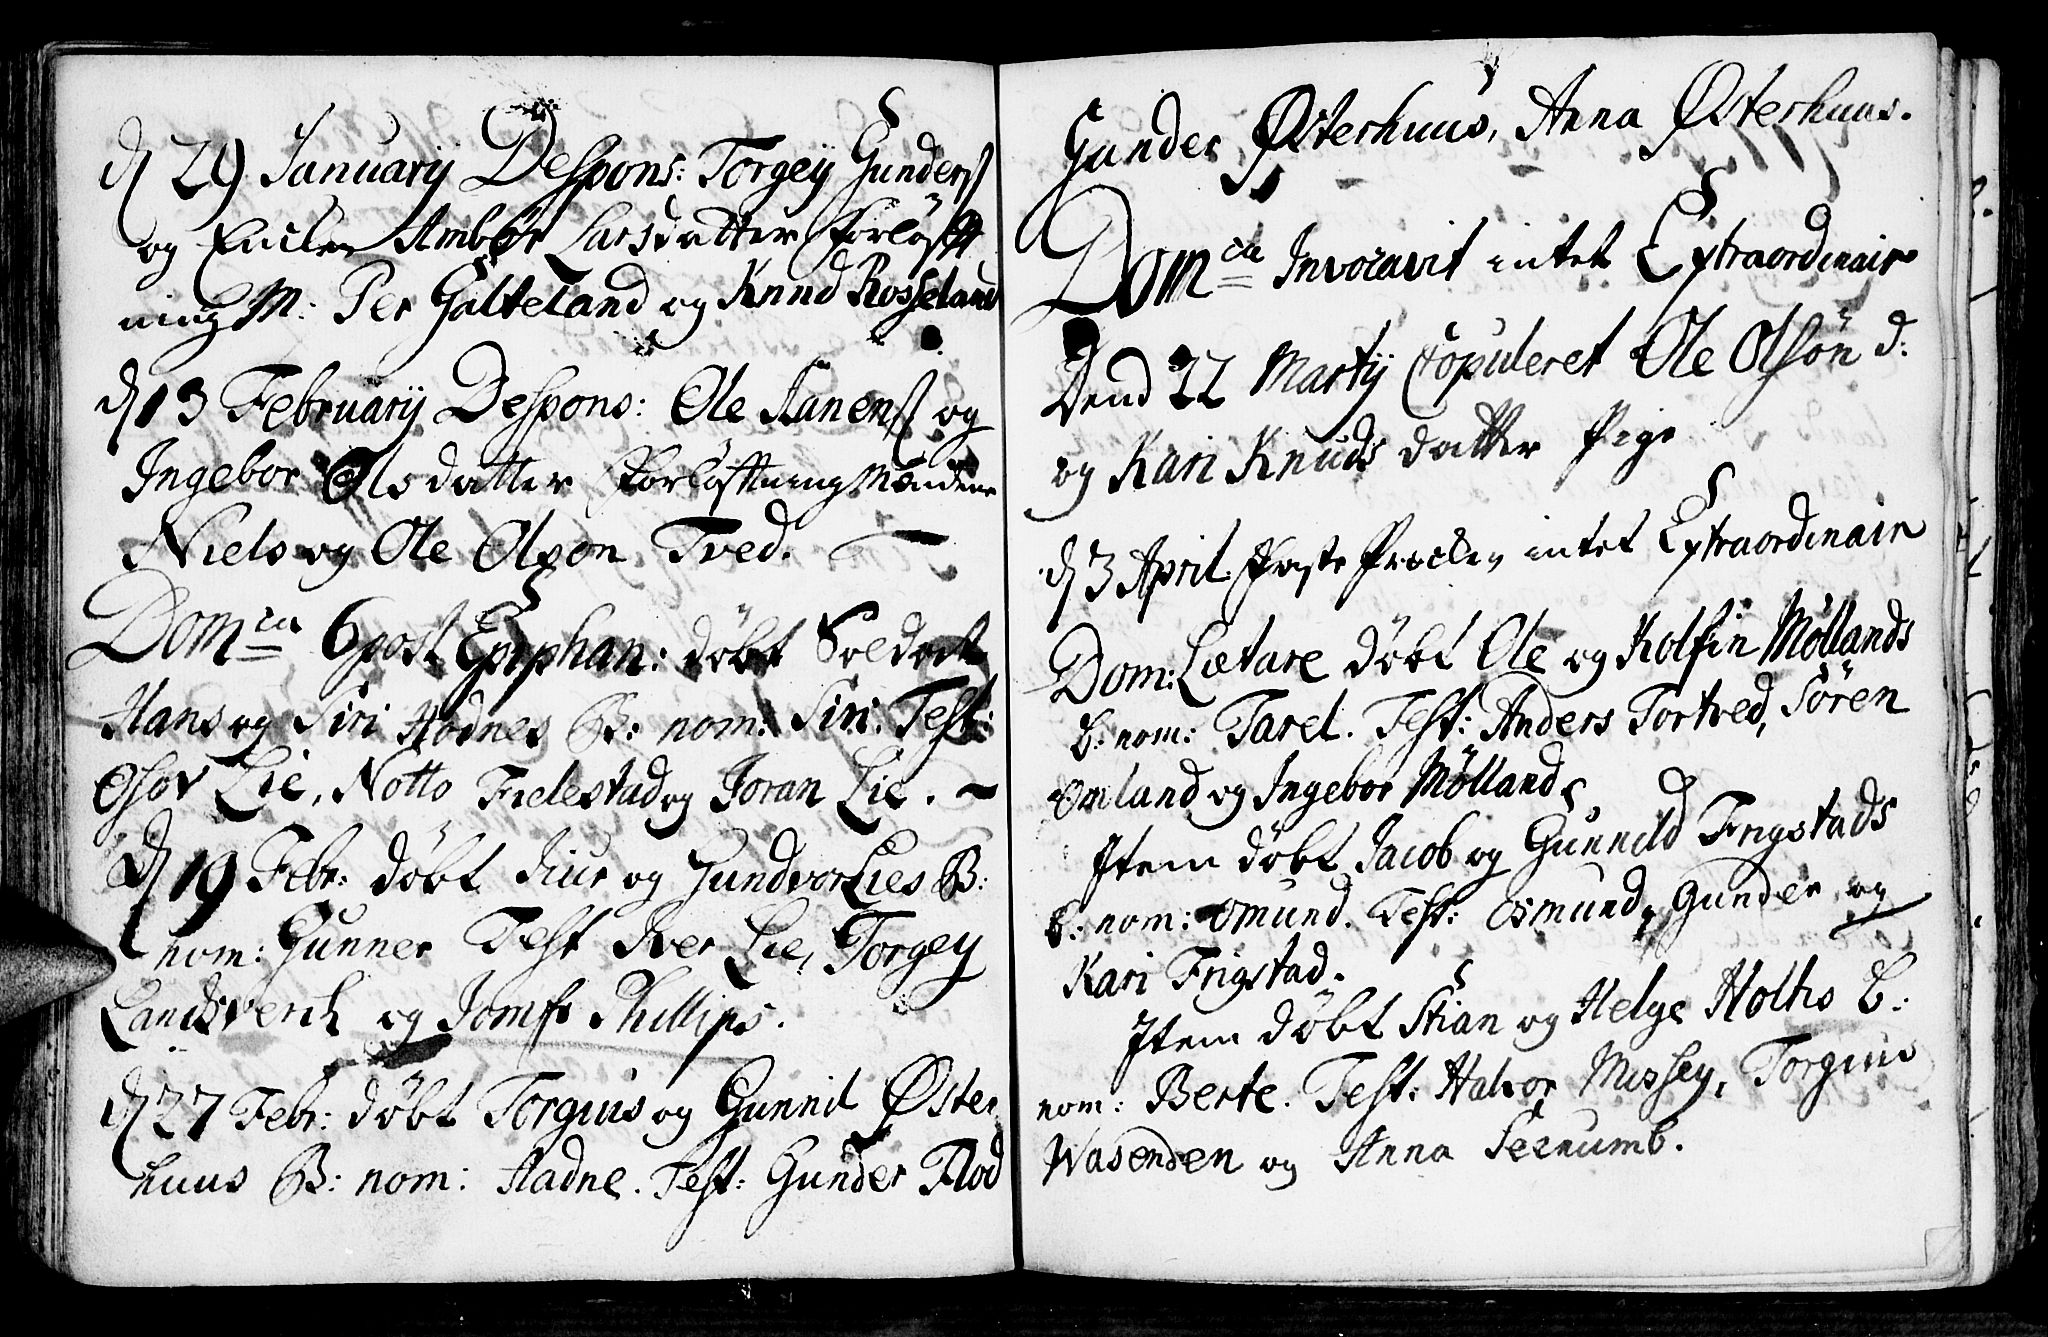 d 29 Januarij Despons: Torgeij Gunders
og Encken Ambor Larsdatter Forløfft
ning M: Per Galteland og Knud Rosseland
d 13 Februarij Despons: Ole Hanens og
Ingebor Olsdatter Forløfftning Mændene
Niels og Ole Olson Tved.
Dom ca 6 post Epiphan: døbt Soldat
Hans og Siri Hodnes B: nom: Siri. Test:
Osov Lie, Notto Fielestad og Joran Lie.
d 19 Febr: døbt og Gundvor Lies B:
nom: Gunner Test Iver Lie, Torgey
Landsverck og Jomfr Phillips.
d 27 Febr: døbt Torgius og Gunnil Øster
huus B: nom: Aadne. Test: Gunder Flod
Gunder Østerhuus, Anna Østerhuus.
Dom ca Invocavit intet Extraordinair
Dend 22 Martij Copuleret Ole Olsøn d:
og Kari Knuds datter Pige
d 3 April: Første Præcken intet Extraordinair
Dom: Lætare døbt Ole og Kolfin Møllands
b: nom: Tarel. Test: Anders Tortved, Søren
Omland og Ingebor Mølland.
Item døbt Jacob og Gunnild Frigstads
b: nom: Omund. Test: Osmund, Gunder og
Kari Frigstad.
Item døbt Stian og Helge Holtes b:
nom: Berte. Test: Halvor Messey, Torgius
Wasenden og Anna Seenumb.